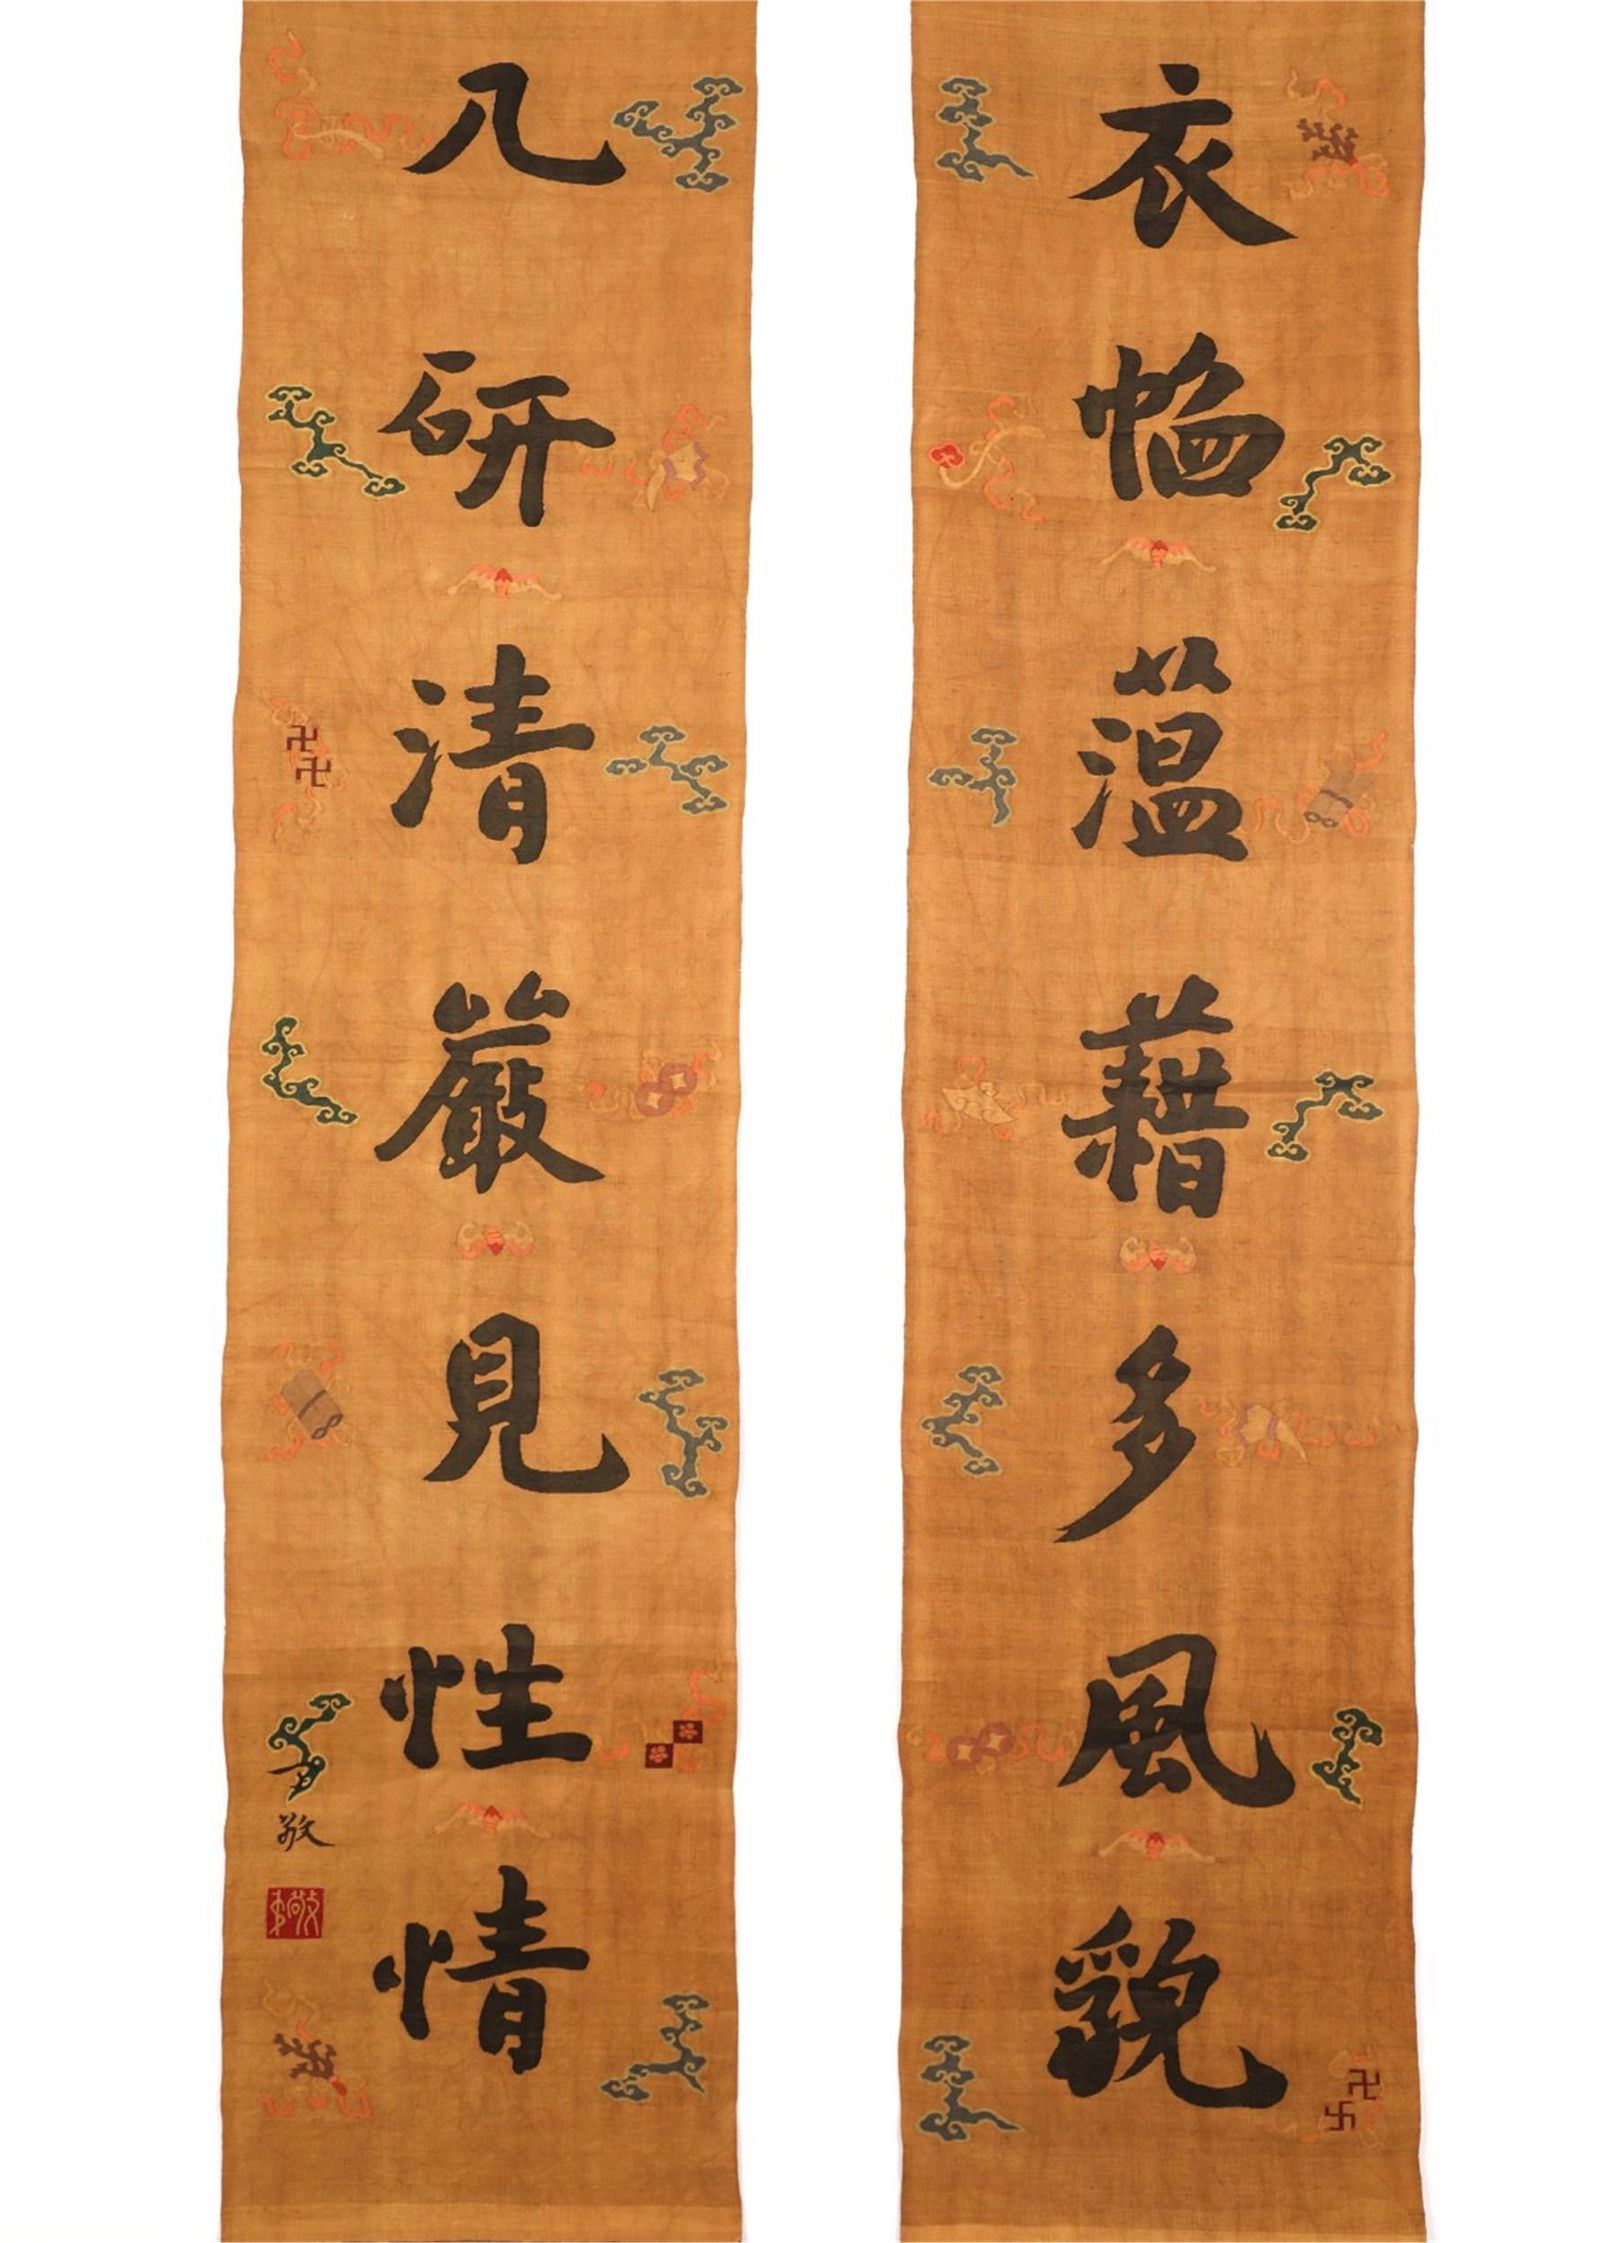 衣帢薀藉多風貌
几研清嚴見性情
敬